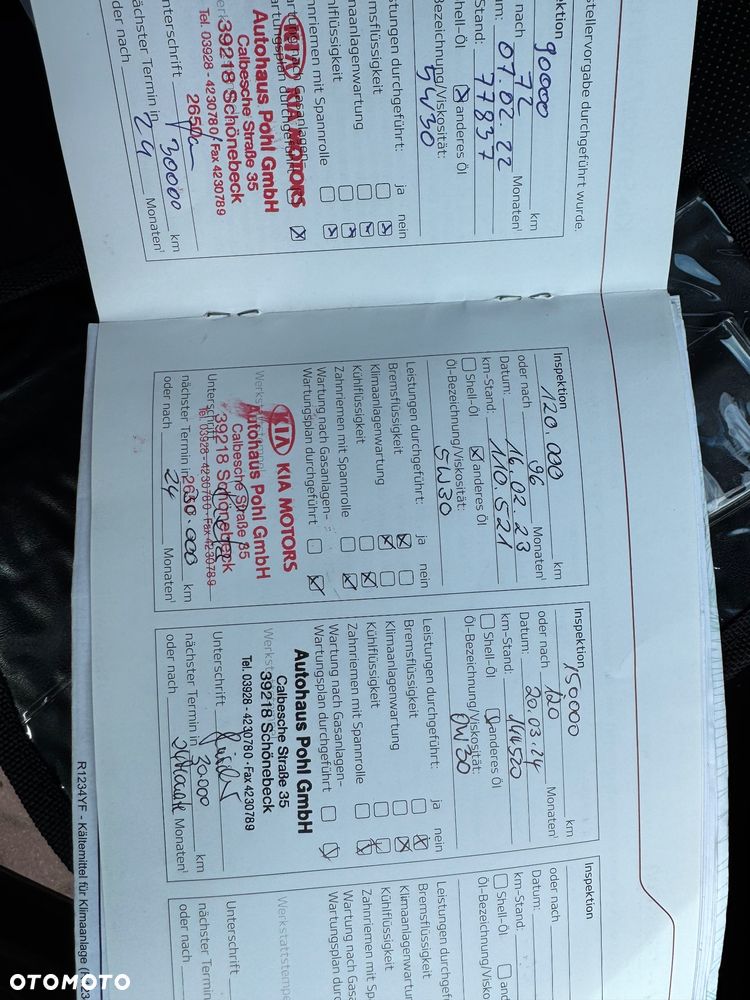 stellervorgabe durchgeführt wurde.
ektion 90000 km
nach 72 Monaten¹
um: 07.02.22
Stand: 77837
Shell-Öl ☒ anderes Öl
Bezeichnung/Viskosität:
5W30
stungen durchgeführt: ja nein
Bremsflüssigkeit ☐ ☒
maanlagenwartung ☐ ☒
ühlflüssigkeit ☐ ☒
hnriemen mit Spannrolle ☐ ☒
KIA KIA MOTORS
Autohaus Pohl GmbH
Calbesche Straße 35
39218 Schönebeck
Tel. 03928 - 4230780 / Fax 4230789
nterschrift
ächster Termin in 30000 km
der nach 24 Monaten¹
Inspektion 120.000 km
oder nach 96 Monaten¹
Datum: 16.02.23
km-Stand: 110.521
☐ Shell-Öl ☒ anderes Öl
Öl-Bezeichnung/Viskosität:
5W30
Leistungen durchgeführt: ja nein
Bremsflüssigkeit ☒ ☐
Klimaanlagenwartung ☒ ☐
Kühlflüssigkeit ☐ ☒
Zahnriemen mit Spannrolle ☐ ☒
Wartung nach Gasanlagen-
Wartungsplan durchgeführt ☐ ☒
KIA KIA MOTORS
Autohaus Pohl GmbH
Calbesche Straße 35
39218 Schönebeck
Tel. 03928 - 4230780 - Fax 4230789
Unterschrift
nächster Termin in km
oder nach 24 Monaten¹
Inspektion 150000 km
oder nach 120 Monaten¹
Datum: 20.03.24
km-Stand: 144520
☐ Shell-Öl ☒ anderes Öl
Öl-Bezeichnung/Viskosität:
0W30
Leistungen durchgeführt: ja nein
Bremsflüssigkeit ☐ ☒
Klimaanlagenwartung ☐ ☒
Kühlflüssigkeit ☐ ☐
Zahnriemen mit Spannrolle ☐ ☒
Wartung nach Gasanlagen-
Wartungsplan durchgeführt ☐ ☒
Autohaus Pohl GmbH
Calbesche Straße 35
39218 Schönebeck
Tel. 03928 - 4230780 - Fax 4230789
Unterschrift
nächster Termin in 30000 km
oder nach Monaten¹
Inspektion
oder nach
Datum:
km-Stand:
☐ Shell-Öl ☐ and
Öl-Bezeichnung/Visko
Leistungen durchgef
Bremsflüssigkeit
Klimaanlagenwartun
Kühlflüssigkeit
Zahnriemen mit Spa
Wartung nach Gasan
Wartungsplan durc
Werkstattstempe
Unterschrift
nächster Termin
oder nach
R1234YF - Kältemittel für Klimaanlage
OTOMOTO